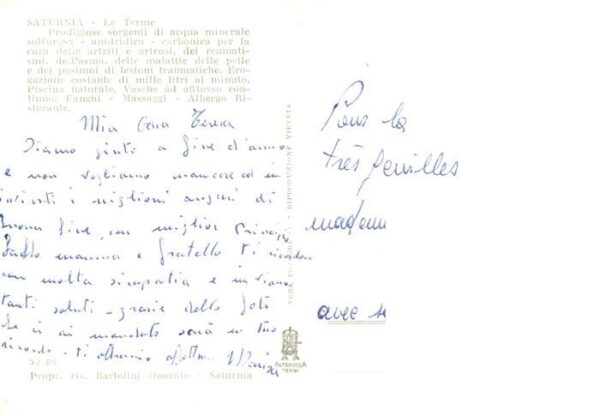 SATURNIA - Le Terme
Prodigiose sorgenti di acqua minerale
solfurosa - anidridica - carbonica per la
cura delle artriti e artrosi, dei reumati-
smi, delle malattie della pelle
e dei postumi di lesioni traumatiche. Ero-
gazione costante di mille litri al minuto,
Piscina naturale, Vasche ad afflusso con-
tinuo, Fanghi - Massaggi - Albergo Ri-
storante.
Mia Cara Teresa
Siamo giunti a fine d'anno
e non vogliamo mancare ad in
i migliori auguri di
buona fine, con miglior Principio
mamma e fratello ti ricordano
con molta simpatia e inviano
tanti saluti - grazie della foto
che ci ai mandato sarà un tuo
ricordo - ti
Propr. ris. Bartolini Onorato - Saturnia
RIPRODUZIONE VIETATA
ALTEROCCA
TERNI
Pour la
très
madem
avec